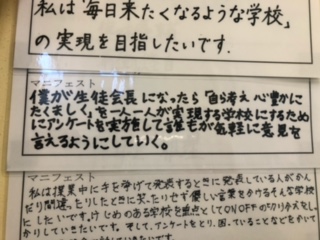 私は「毎日来たくなるような学校」
の実現を目指したいです.
マニフェスト
僕が生徒会長になったら「自ら考え心豊かに
たくましく」を一人一人が実現する学校にするため
にアンケートを実施して誰もが気軽に意見を
言えるようにしていく。
マニフェスト
私は授業中に手を挙げて発表するときに発表している人がかん
だり間違ったりしたときに笑ったりせず優しい言葉をかけるそんな学校
にしたいです。けじめのある学校を重点としてON OFFの切りかえをしっ
かりしていきたいです。そして、アンケートをとり、困っていることなどをかいて